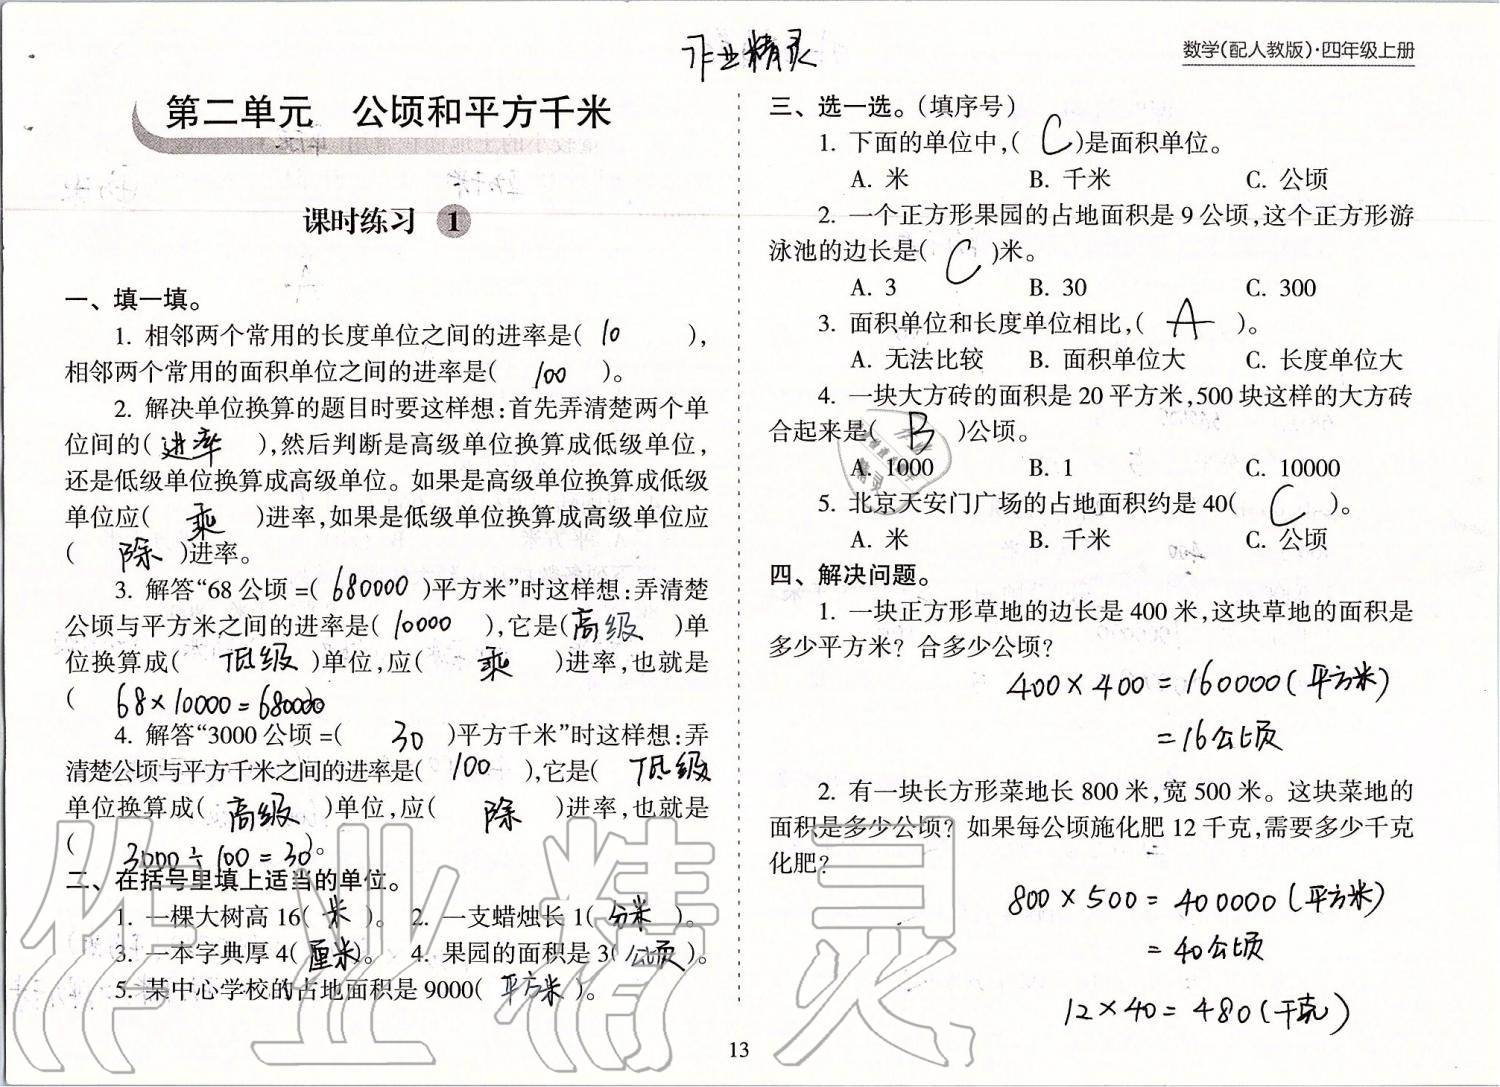 作业精灵
数学(配人教版)·四年级上册
第二单元 公顷和平方千米
课时练习 1
一、填一填。
1. 相邻两个常用的长度单位之间的进率是( 10 ),
相邻两个常用的面积单位之间的进率是( 100 )。
2. 解决单位换算的题目时要这样想:首先弄清楚两个单
位间的( 进率 ),然后判断是高级单位换算成低级单位,
还是低级单位换算成高级单位。如果是高级单位换算成低级
单位应( 乘 )进率,如果是低级单位换算成高级单位应
( 除 )进率。
3. 解答“68公顷=( 680000 )平方米”时这样想:弄清楚
公顷与平方米之间的进率是( 10000 ),它是( 高级 )单
位换算成( 低级 )单位,应( 乘 )进率,也就是
( 68×10000=680000
4. 解答“3000公顷=( 30 )平方千米”时这样想:弄
清楚公顷与平方千米之间的进率是( 100 ),它是( 低级
单位换算成( 高级 )单位,应( 除 )进率,也就是
( 3000÷100=30 )。
二、在括号里填上适当的单位。
1. 一棵大树高16( 米 )。 2. 一支蜡烛长1( 分米 )。
3. 一本字典厚4( 厘米 )。 4. 果园的面积是3( 公顷 )。
5. 某中心学校的占地面积是9000( 平方米 )。
三、选一选。(填序号)
1. 下面的单位中,( C )是面积单位。
A. 米 B. 千米 C. 公顷
2. 一个正方形果园的占地面积是9公顷,这个正方形游
泳池的边长是( C )米。
A. 3 B. 30 C. 300
3. 面积单位和长度单位相比,( A )。
A. 无法比较 B. 面积单位大 C. 长度单位大
4. 一块大方砖的面积是20平方米,500块这样的大方砖
合起来是( B )公顷。
A. 1000 B. 1 C. 10000
5. 北京天安门广场的占地面积约是40( C )。
A. 米 B. 千米 C. 公顷
四、解决问题。
1. 一块正方形草地的边长是400米,这块草地的面积是
多少平方米? 合多少公顷?
400×400=160000(平方米)
=16公顷
2. 有一块长方形菜地长800米,宽500米。这块菜地的
面积是多少公顷? 如果每公顷施化肥12千克,需要多少千克
化肥?
800×500=400000(平方米)
=40公顷
12×40=480(千克)
13
作业精灵